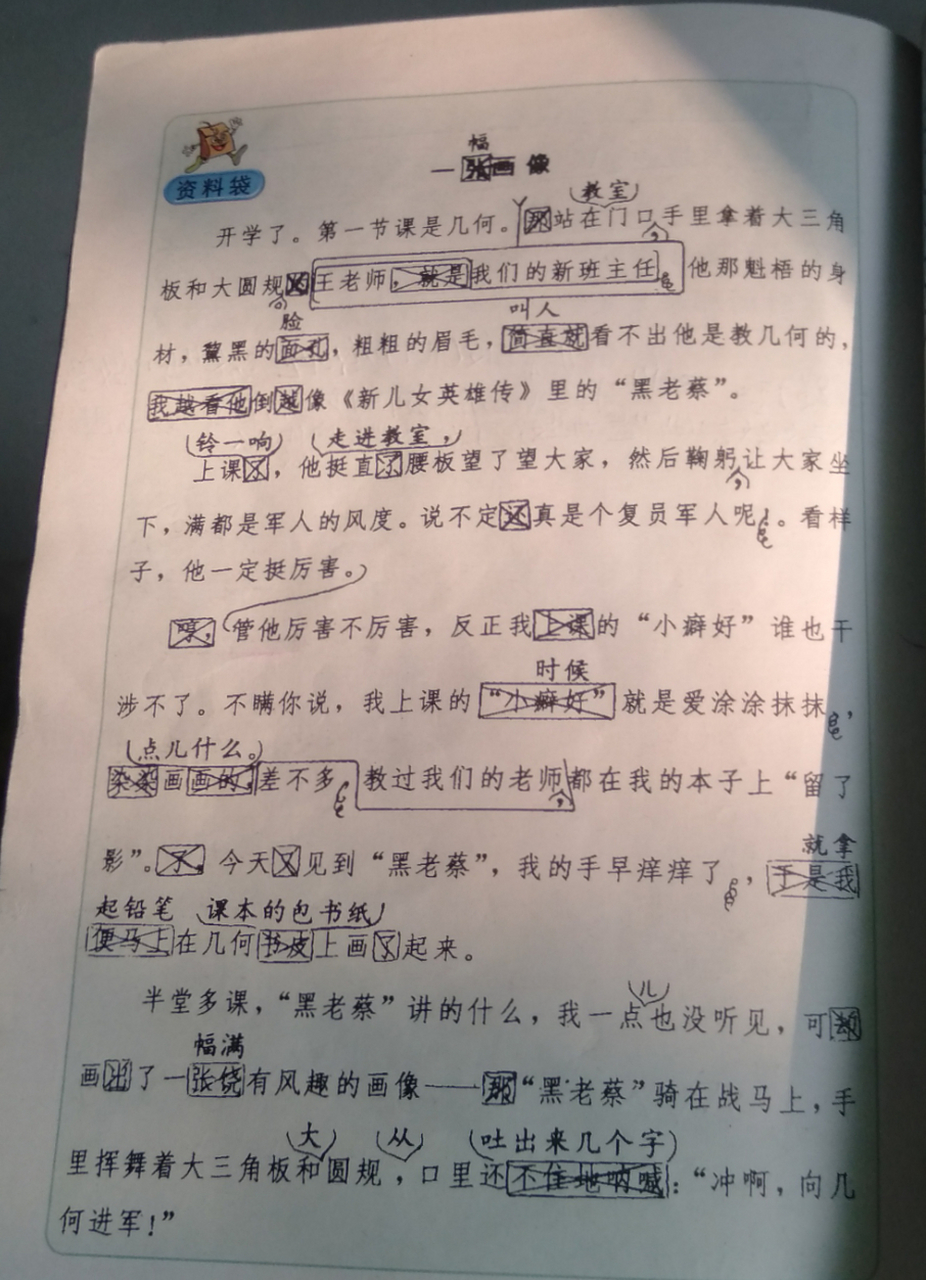 资料袋
幅
一张画像
教室
开学了。第一节课是几何。那站在门口,手里拿着大三角
板和大圆规的王老师,就是我们的新班主任。他那魁梧的身
脸 叫人
材,黧黑的面孔,粗粗的眉毛,简直就看不出他是教几何的,
我越看他倒越像《新儿女英雄传》里的“黑老蔡”。
铃一响 走进教室,
上课了,他挺直了腰板望了望大家,然后鞠躬,让大家坐
下,满都是军人的风度。说不定还真是个复员军人呢!。看样
子,他一定挺厉害。
嘿,管他厉害不厉害,反正我上课的“小癖好”谁也干
时候
涉不了。不瞒你说,我上课的“小癖好”就是爱涂涂抹抹,
点儿什么。
染染画画的,差不多,教过我们的老师,都在我的本子上“留了
影”。不,今天又见到“黑老蔡”,我的手早痒痒了,于是我
就拿
起铅笔 课本的包书纸
便马上在几何书皮上画了起来。
儿
半堂多课,“黑老蔡”讲的什么,我一点也没听见,可却
幅满
画出了一张饶有风趣的画像——那“黑老蔡”骑在战马上,手
大 从 吐出来几个字
里挥舞着大三角板和圆规,口里还不住地呐喊:“冲啊,向几
何进军!”